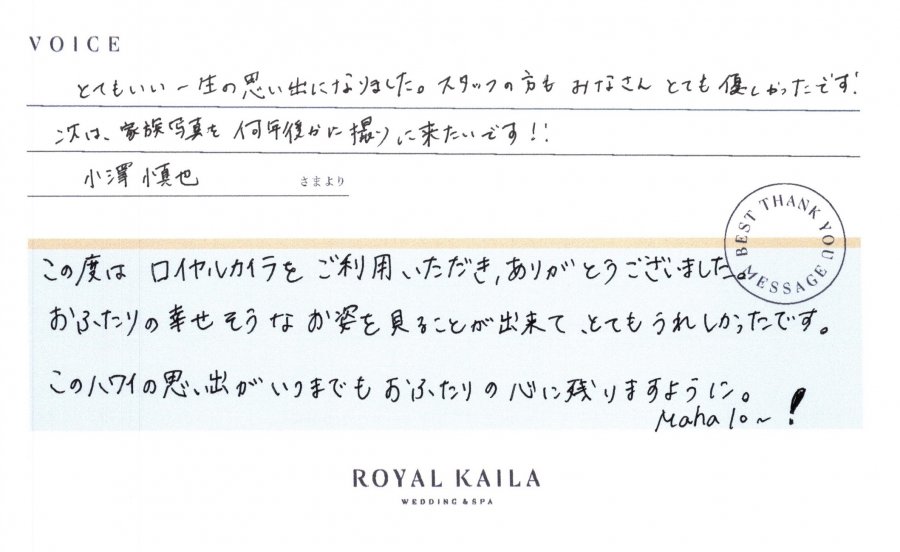 VOICE
とてもいい一生の思い出になりました。スタッフの方も みなさん とても優しかったです!
次は、家族写真を何年後かに撮りに来たいです!!
小澤 慎也 さまより
BEST THANK YOU MESSAGE
この度は ロイヤルカイラを ご利用いただき,ありがとうございました。
おふたりの幸せそうなお姿を見ることが出来て、とてもうれしかったです。
このハワイの思い出がいつまでもおふたりの心に残りますように。
Mahalo~!
ROYAL KAILA
WEDDING & SPA